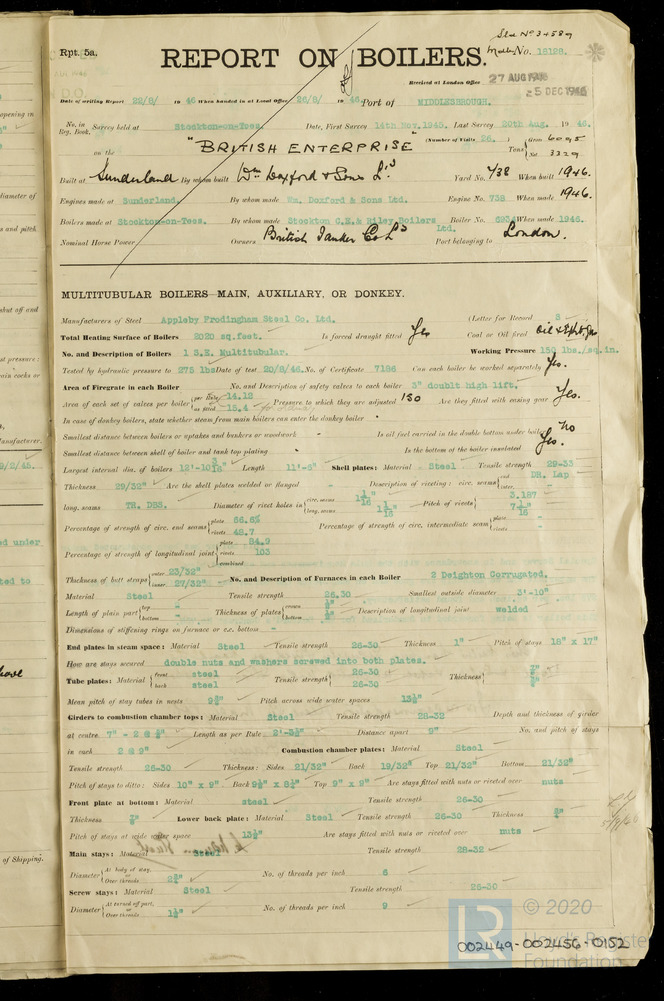 Sld. No 34589
Rpt. 5a.
REPORT ON BOILERS.
No. 16128.
Received at London Office 27 AUG 1946
5 DEC 1946
Date of writing Report 22/8/ 19 46 When handed in at Local Office 26/8/ 19 46 Port of MIDDLESBROUGH.
No. in Reg. Book. Survey held at Stockton-on-Tees. Date, First Survey 14th Nov. 1945. Last Survey 20th Aug. 19 46.
(Number of Visits 26. )
on the "BRITISH ENTERPRISE" Tons Gross 6095 Net 3329
Built at Sunderland By whom built Wm Doxford & Sons Ld. Yard No. 738 When built 1946.
Engines made at Sunderland. By whom made Wm. Doxford & Sons Ltd. Engine No. 738 When made 1946.
Boilers made at Stockton-on-Tees. By whom made Stockton C.E. & Riley Boilers Ltd. Boiler No. 6934 When made 1946.
Nominal Horse Power Owners British Tanker Co Ld Port belonging to London.
MULTITUBULAR BOILERS—MAIN, AUXILIARY, OR DONKEY.
Manufacturers of Steel Appleby Frodingham Steel Co. Ltd. (Letter for Record S
Total Heating Surface of Boilers 2020 sq.feet. Is forced draught fitted Yes Coal or Oil fired
No. and Description of Boilers 1 S.E. Multitubular. Working Pressure 150 lbs./sq.in.
Tested by hydraulic pressure to 275 lbs Date of test 20/8/46. No. of Certificate 7186 Can each boiler be worked separately Yes.
Area of Firegrate in each Boiler No. and Description of safety valves to each boiler 3" double high lift.
Area of each set of valves per boiler per Rule 14.12 as fitted 15.4 Pressure to which they are adjusted 150 Are they fitted with easing gear Yes.
In case of donkey boilers, state whether steam from main boilers can enter the donkey boiler
Smallest distance between boilers or uptakes and bunkers or woodwork Is oil fuel carried in the double bottom under boilers No
Smallest distance between shell of boiler and tank top plating Is the bottom of the boiler insulated Yes.
Largest internal dia. of boilers 12'-10 Length 11'-6" Shell plates: Material Steel Tensile strength 29-33
Thickness 29/32" Are the shell plates welded or flanged Description of riveting: circ. seams end DR. Lap inter.
long. seams TR. DBS. Diameter of rivet holes in circ. seams 1 1/16" long. seams 1 1/16" Pitch of rivets 3.187
Percentage of strength of circ. end seams plate 66.6% rivets 48.7 Percentage of strength of circ. intermediate seam plate rivets
Percentage of strength of longitudinal joint plate 84.9 rivets 103 combined
Thickness of butt straps outer 23/32" inner 27/32" No. and Description of Furnaces in each Boiler 2 Deighton Corrugated.
Material Steel Tensile strength 26.30 Smallest outside diameter 3'-10"
Length of plain part top bottom Thickness of plates crown bottom Description of longitudinal joint welded
Dimensions of stiffening rings on furnace or c.c. bottom
End plates in steam space: Material Steel Tensile strength 26-30 Thickness 1" Pitch of stays 18" x 17"
How are stays secured double nuts and washers screwed into both plates.
Tube plates: Material front steel back steel Tensile strength 26-30 26-30 Thickness
Mean pitch of stay tubes in nests Pitch across wide water spaces 13½"
Girders to combustion chamber tops: Material Steel Tensile strength 28-32 Depth and thickness of girder
at centre Length as per Rule Distance apart 9" No. and pitch of stays
in each 2 @ 9" Combustion chamber plates: Material Steel
Tensile strength 26-30 Thickness: Sides 21/32" Back 19/32" Top 21/32" Bottom 21/32"
Pitch of stays to ditto: Sides 10" x 9" Back Top 9" x 9" Are stays fitted with nuts or riveted over nuts
Front plate at bottom: Material steel Tensile strength 26-30
Thickness Lower back plate: Material Steel Tensile strength 26-30 Thickness
Pitch of stays at wide water space 13½" Are stays fitted with nuts or riveted over nuts
Main stays: Material Steel Tensile strength 28-32
Diameter At body of stay, or Over threads No. of threads per inch 6
Screw stays: Material Steel Tensile strength 26-30
Diameter At turned off part, or Over threads No. of threads per inch 9
LR © 2020
Lloyd's Register
Foundation
002449-002456-0152